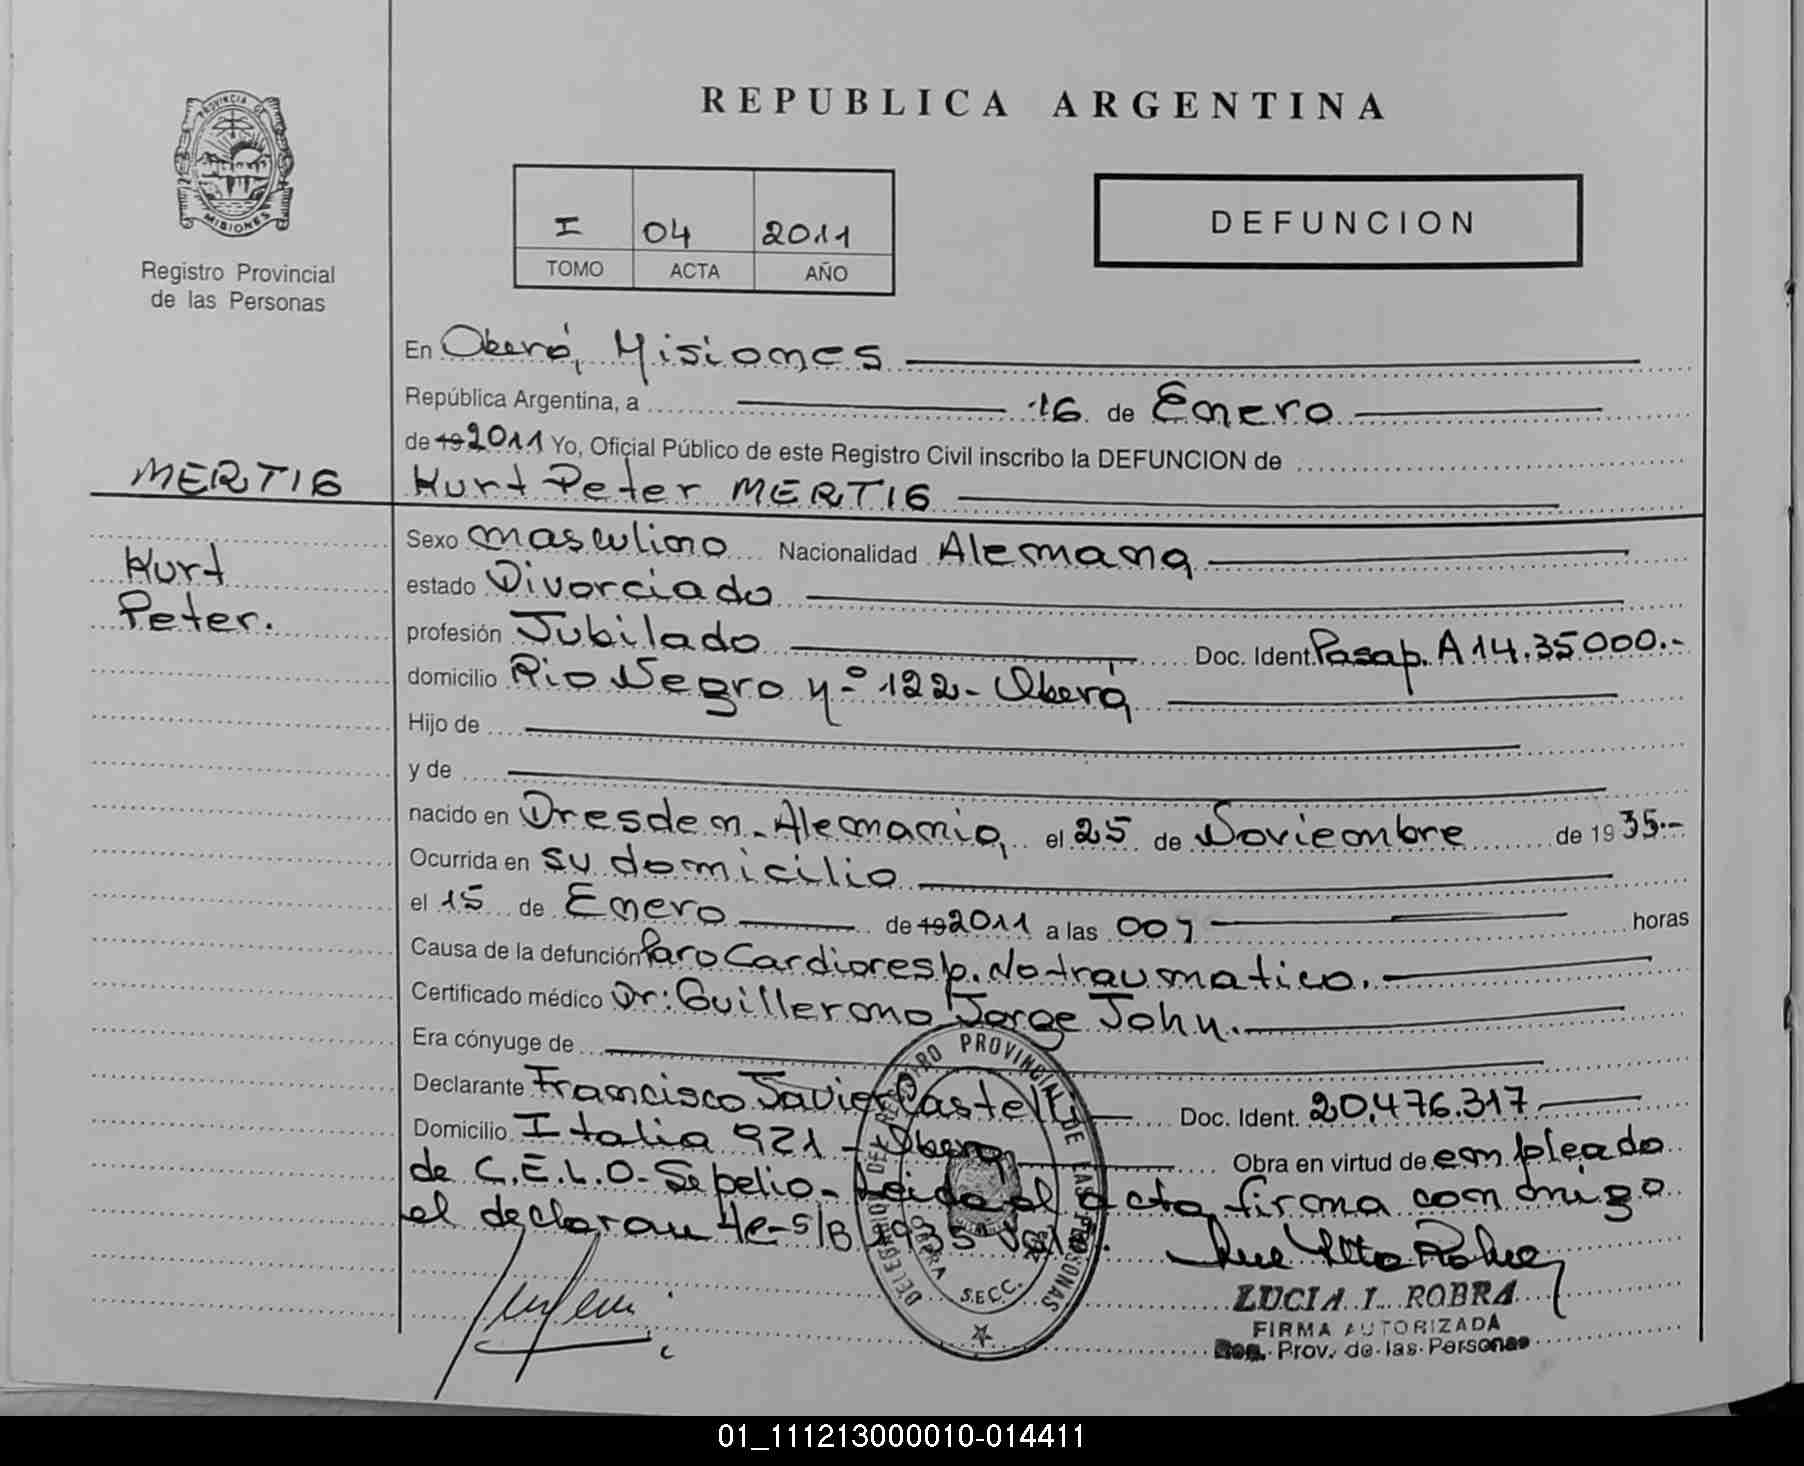 REPUBLICA ARGENTINA
PROVINCIA DE
MISIONES
Registro Provincial
de las Personas
I 04 2011
TOMO ACTA AÑO
DEFUNCION
En Oberá, Misiones
República Argentina, a 16 de Enero
de 19 2011 Yo, Oficial Público de este Registro Civil inscribo la DEFUNCION de
MERTIG
Kurt Peter MERTIG
Kurt
Peter.
Sexo masculino Nacionalidad Alemana
estado Divorciado
profesión Jubilado Doc. Ident. Pasap. A 14.35000.-
domicilio Rio Negro n.º 122- Oberá
Hijo de
y de
nacido en Dresden - Alemania, el 25 de Noviembre de 1935.-
Ocurrida en su domicilio
el 15 de Enero de 19 2011 a las 007 horas
Causa de la defunción Paro Cardioresp. No traumatico.
Certificado médico Dr: Guillermo Jorge John.
Era cónyuge de
Declarante Francisco Javier Castelli Doc. Ident. 20.476.317
Domicilio Italia 921 - Oberá Obra en virtud de empleado
de C.E.L.O. Sepelio - Leida el acta, firma conmigo
el declarante - S/B 1935
DELEGACION DEL REGISTRO PROVINCIAL DE LAS PERSONAS
SECC.
LUCIA I. ROBRA
FIRMA AUTORIZADA
Reg. Prov. de las Personas
01_111213000010-014411